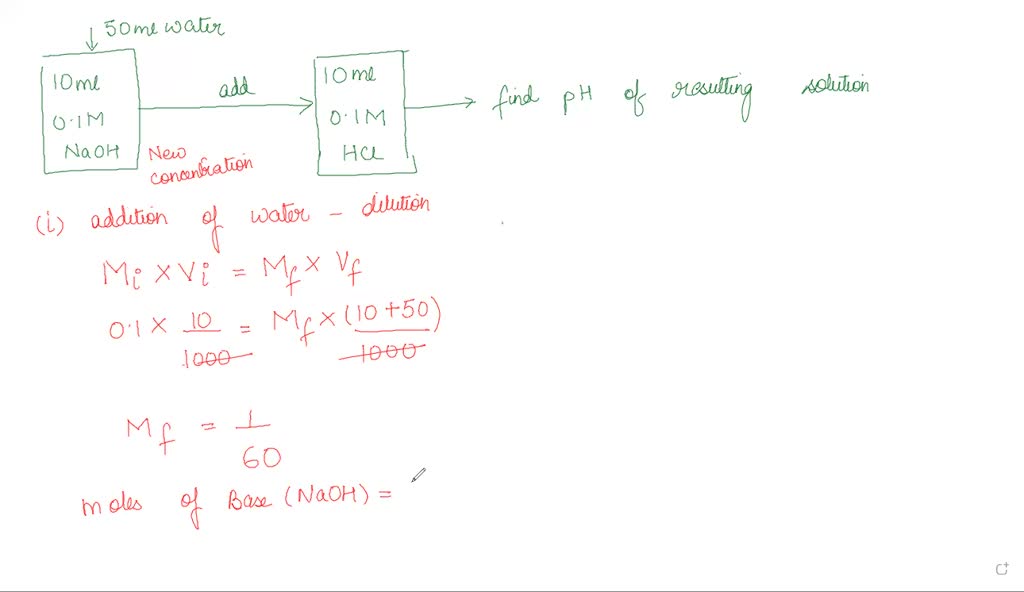 ↓ 50ml water
10ml
0.1M
NaOH
add
10ml
0.1M
HCl
find pH of resulting solution
New
concentration
(i) addition of water - dilution
Mi × Vi = Mf × Vf
0.1 × 10/1000 = Mf × (10+50)/1000
Mf = 1/60
moles of Base (NaOH) =